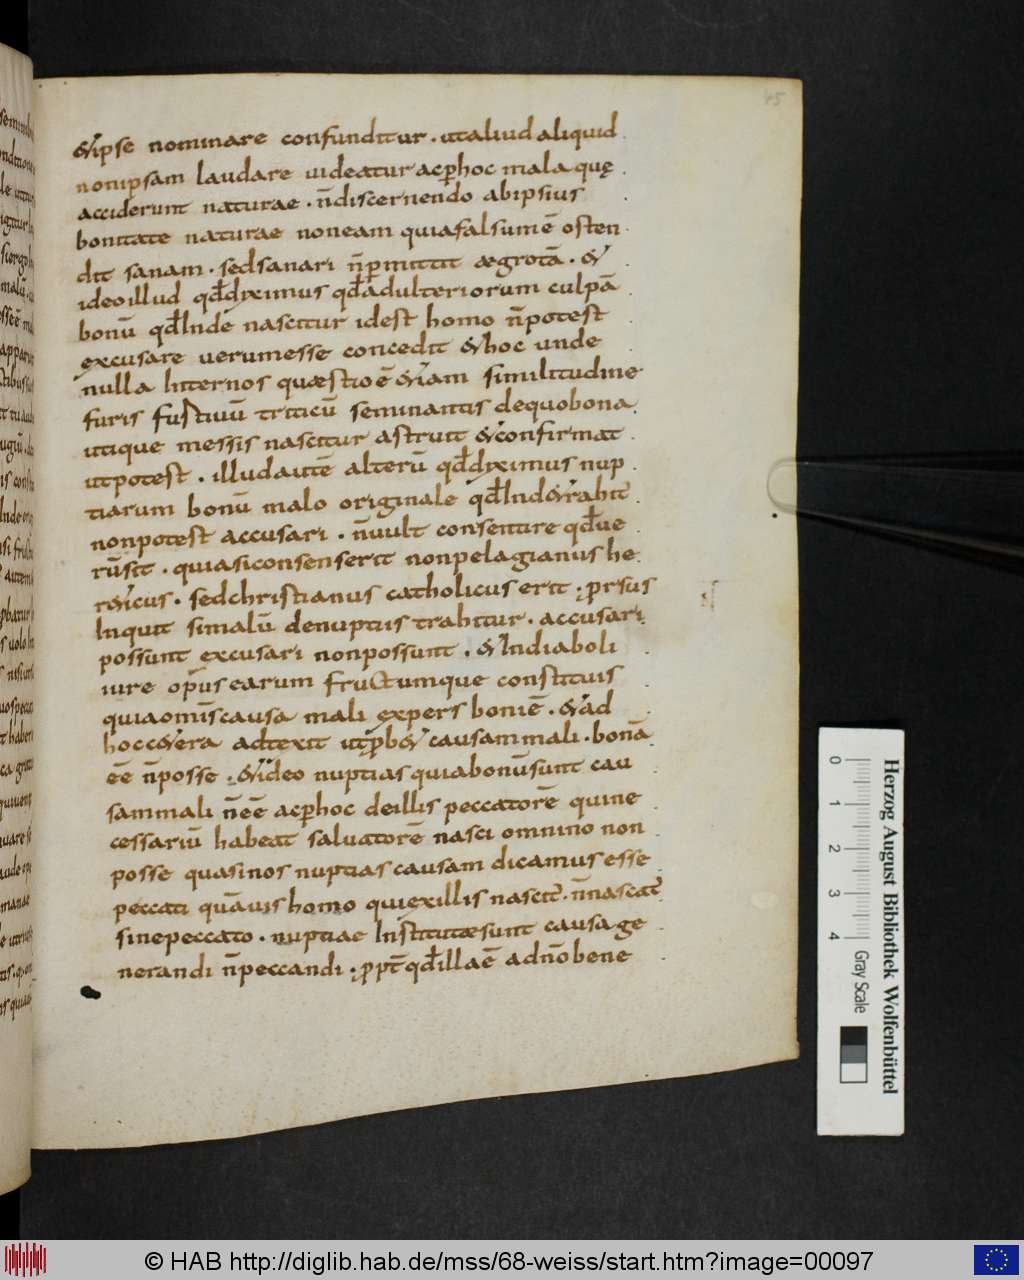 45
&ipse nominare confunditur · utaliud aliquid
nonipsam laudare uideatur acꝑhoc mala quę
acciderunt naturae · n̄discernendo abipsius
bonitate naturae noneam quiafalsumē osten
dit sanam · sedsanari n̄ꝑmittit ægrotā · &
ideoillud qđdyximus qđadulteriorum culpā
bonū qđInde nascitur idest homo n̄potest
excusare uerumesse concedit &hoc unde
nulla Internos quæstioē &iam similitudine
furis furtiuū triticū seminantis dequobona
utique messis nascitur astruit &confirmat
utpotest · illudautē alterū qđdyximus nup
tiarum bonū malo originale qđInd&rahit̄
nonpotest accusari · n̄uult consentire qđue
rūsit · quiasiconsenserit nonpelagianus he
r&icus · sedchristianus catholicus erit ; prsus
Inquit simalū denuptiis trahitur · accusari
possunt excusari nonpossunt · &Indiaboli
iure opus earum fructumque constituis
quiaomīscausa mali expers boniē · &ad
hocc&era adtexit utpb& causammali · bonā
eē n̄posse ; &ideo nuptias quiabonūsunt cau
sammali n̄eē acꝑhoc deillis peccatorē quine
cessariū habeat saluatorē nasci omnino non
posse quasinos nuptias causam dicamus esse
peccati quāuis homo quiexillis nascit̄ · n̄nascat̄
sinepeccato · nuptiae Institutæsunt causa ge
nerandi n̄peccandi ; ꝓpt̄ qđillaē adn̄obene
Herzog August Bibliothek Wolfenbüttel
0 1 2 3 4 Gray Scale
© HAB http://diglib.hab.de/mss/68-weiss/start.htm?image=00097